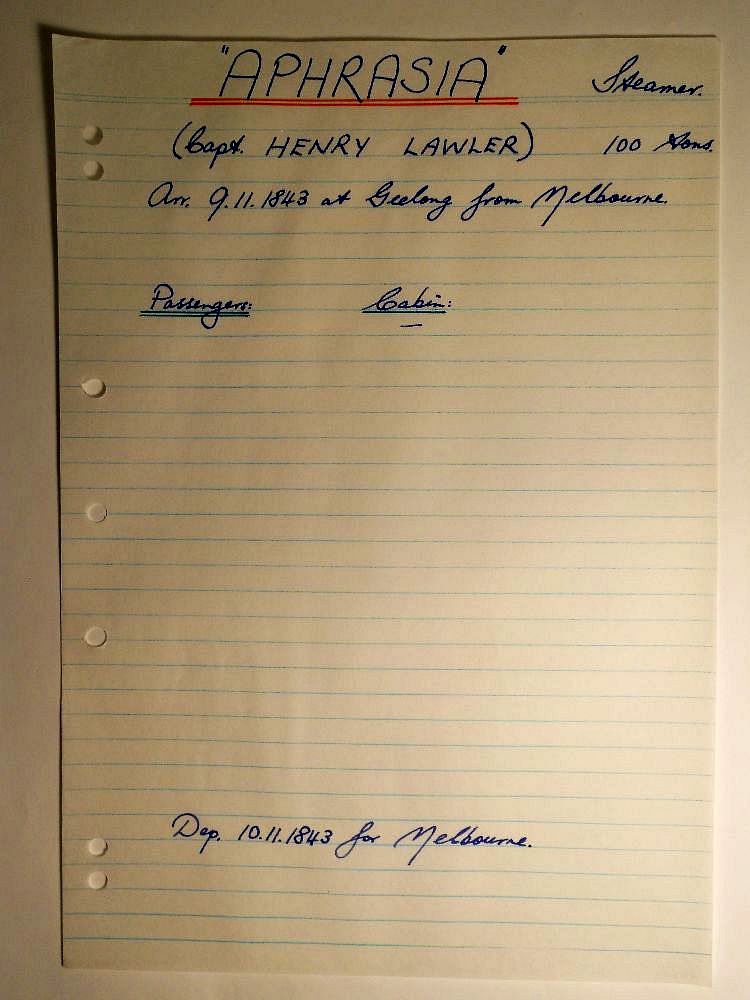 "APHRASIA" Steamer.
(Capt. HENRY LAWLER) 100 tons.
Arr. 9.11.1843 at Geelong from Melbourne.
Passengers: Cabin:
—
Dep. 10.11.1843 for Melbourne.